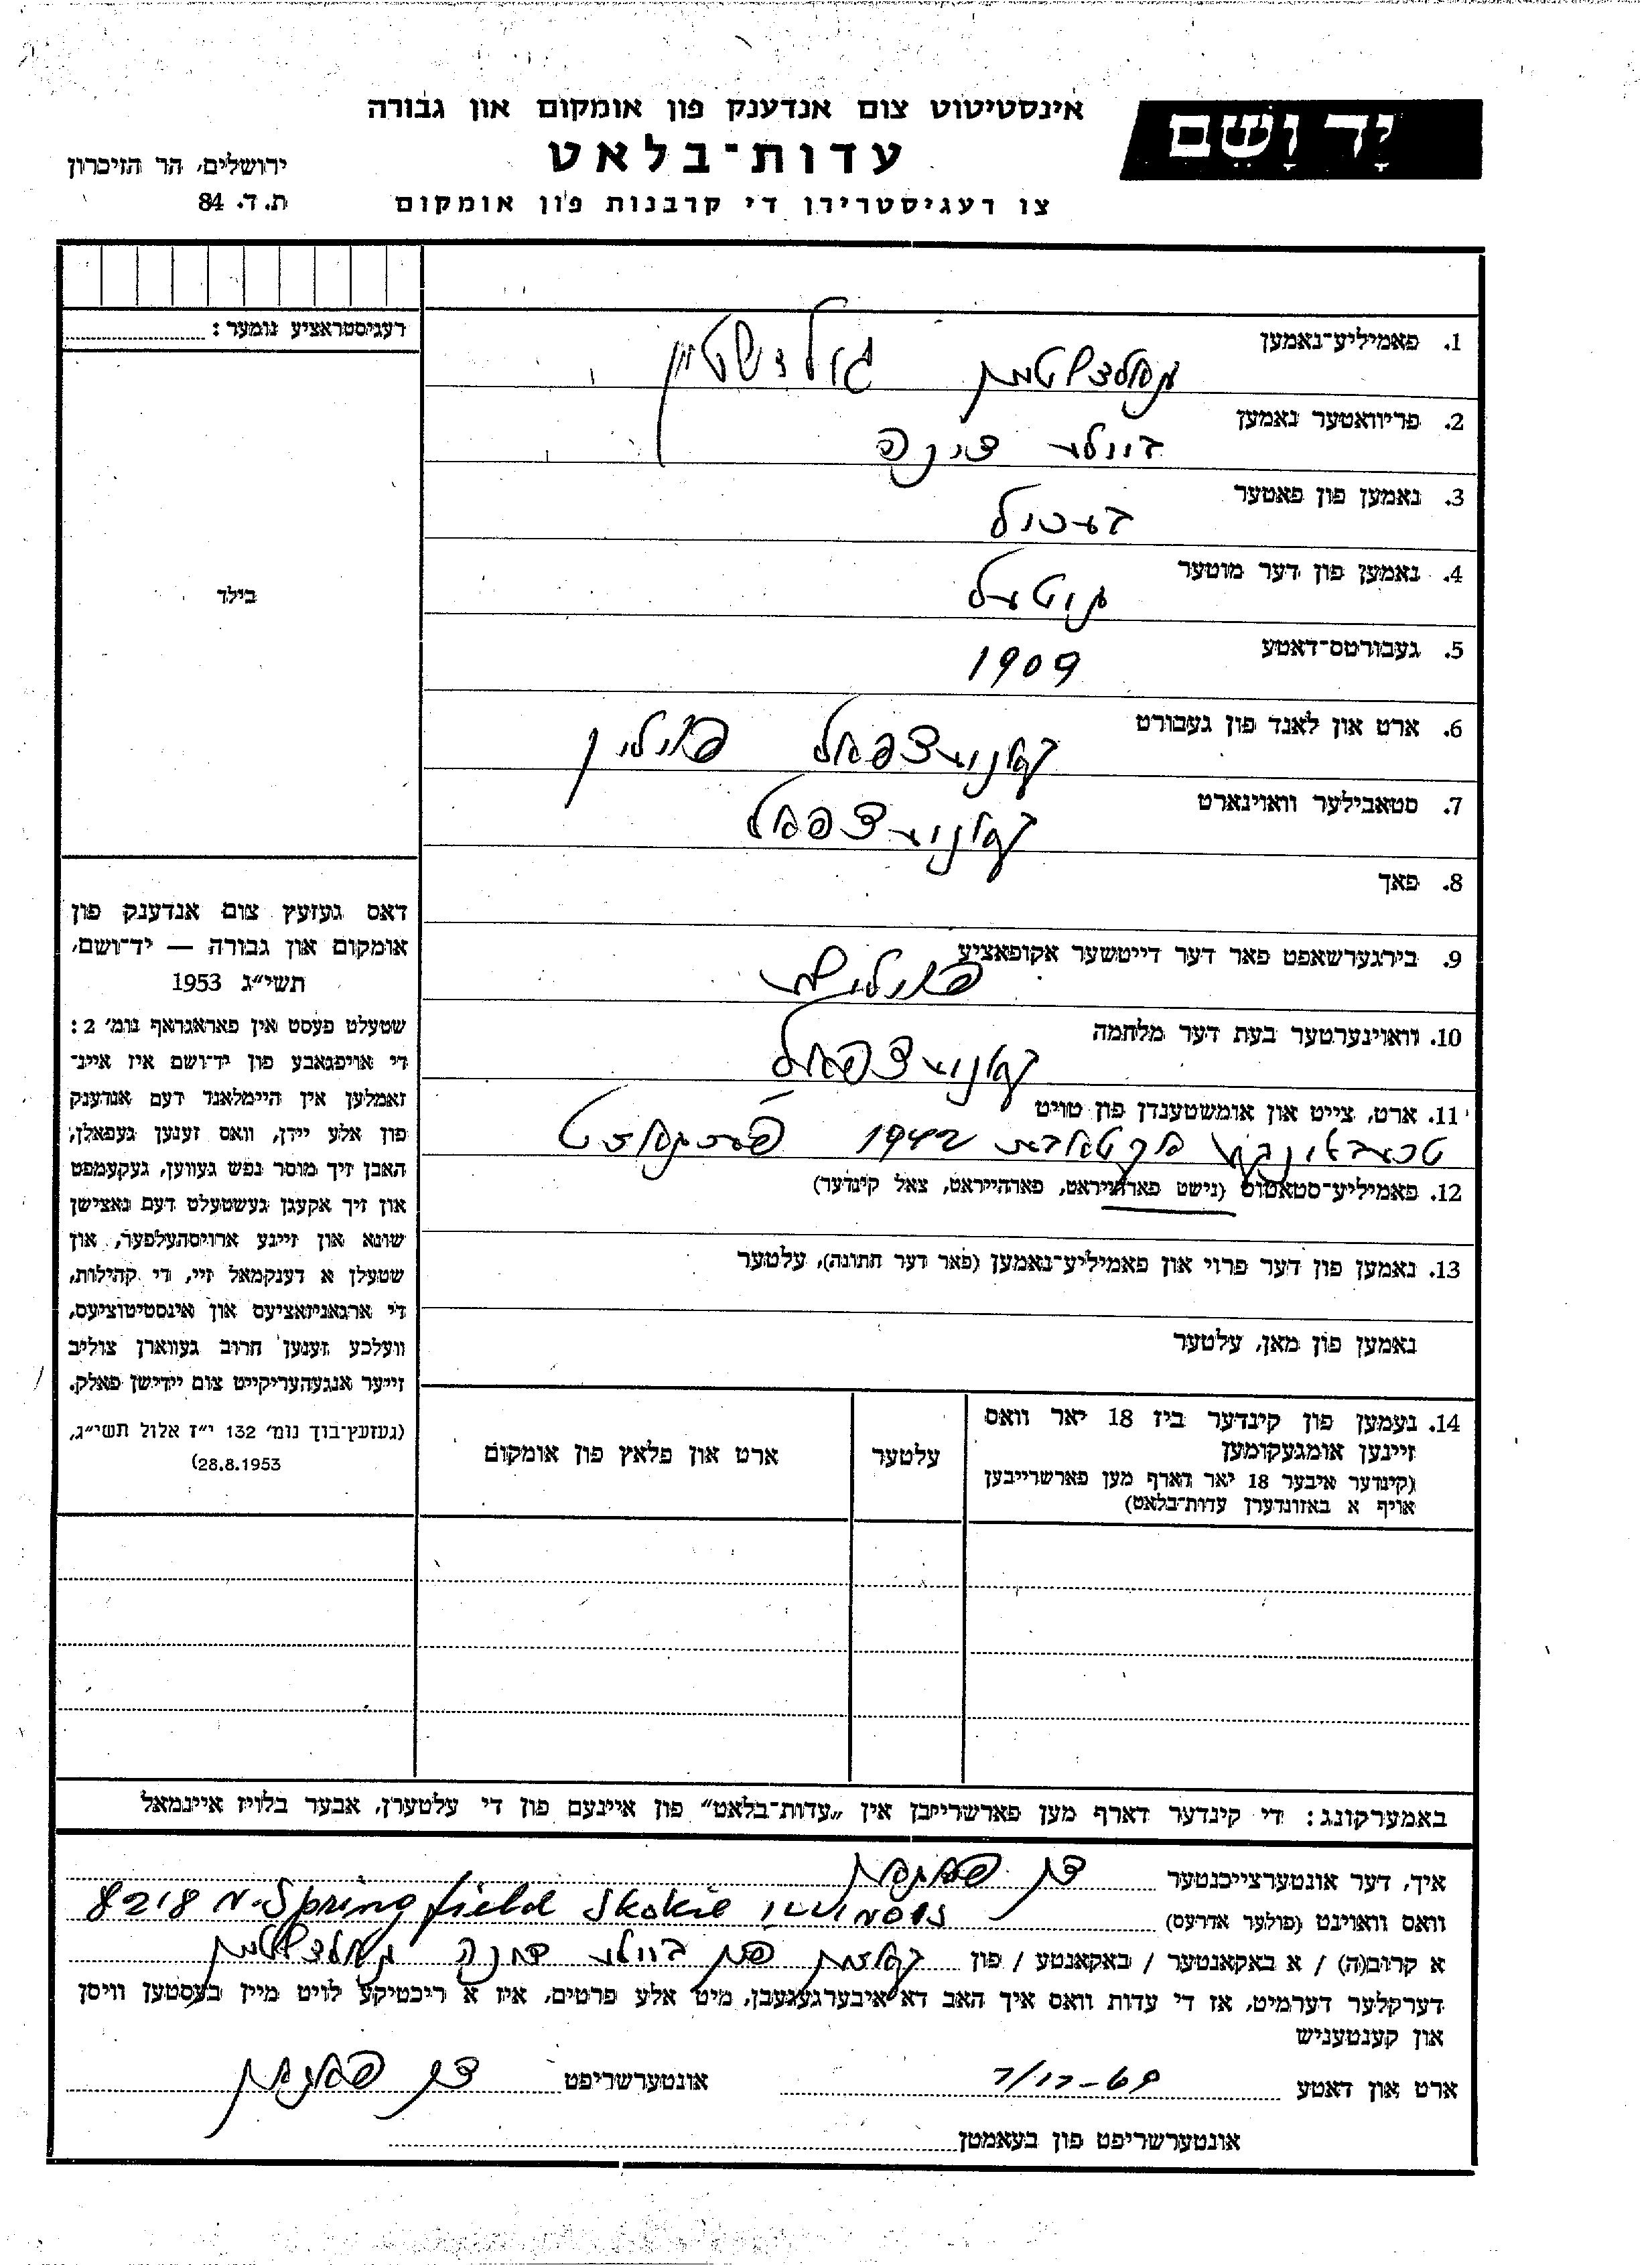 יָד וָשֵׁם
אינסטיטוט צום אנדענק פון אומקום און גבורה
עדות־בלאט
צו רעגיסטרירן די קרבנות פון אומקום
ירושלים, הר הזיכרון
ת. ד. 84
רעגיסטראציע נומער :
בילד
1. פאמיליע־נאמען
גאלדשטיין
2. פריוואטער נאמען
3. נאמען פון פאטער
4. נאמען פון דער מוטער
גיטעל
5. געבורטס־דאטע 1909
6. ארט און לאנד פון געבורט פוילין
7. סטאבילער וואוינארט
8. פאך
9. בירגערשאפט פאר דער דייטשער אקופאציע
10. וואוינערטער בעת דער מלחמה
11. ארט, צייט און אומשטענדן פון טויט
טרעבלינקע אקטאבער 1942
12. פאמיליע־סטאטוס (נישט פארהייראט, פארהייראט, צאל קינדער)
13. נאמען פון דער פרוי און פאמיליע־נאמען (פאר דער חתונה), עלטער
נאמען פון מאן, עלטער
14. נעמען פון קינדער ביז 18 יאר וואס
זיינען אומגעקומען
(קינדער איבער 18 יאר דארף מען פארשרייבן
אויף א באזונדערן עדות־בלאט)
עלטער
ארט און פלאץ פון אומקום
דאס געזעץ צום אנדענק פון
אומקום און גבורה — יד־ושם,
תשי״ג 1953
שטעלט פעסט אין פאראגראף נומ׳ 2 :
די אויפגאבע פון יד־ושם איז איינ־
זאמלען אין היימלאנד דעם אנדענק
פון אלע יידן, וואס זענען געפאלן,
האבן זיך מוסר נפש געווען, געקעמפט
און זיך אקעגן געשטעלט דעם נאצישן
שונא און זיינע ארויסהעלפער, און
שטעלן א דענקמאל זיי, די קהילות,
די ארגאניזאציעס און אינסטיטוציעס,
וועלכע זענען חרוב געווארן צוליב
זייער אנגעהעריקייט צום יידישן פאלק.
(געזעץ־בוך נומ׳ 132 י״ז אלול תשי״ג,
28.8.1953)
באמערקונג : די קינדער דארף מען פארשרייבן אין „עדות־בלאט״ פון איינעם פון די עלטערן, אבער בלויז איינמאל
איך, דער אונטערצייכנטער
וואס וואוינט (פולער אדרעס) 8218 N. Springfield Skokie ILLINOIS
א קרוב(ה) / א באקאנטער / באקאנטע / פון
דערקלער דערמיט, אז די עדות וואס איך האב דא איבערגעגעבן, מיט אלע פרטים, איז א ריכטיקע לויט מיין בעסטען וויסן
און קענטעניש
ארט און דאטע אונטערשריפט
אונטערשריפט פון בעאמטן